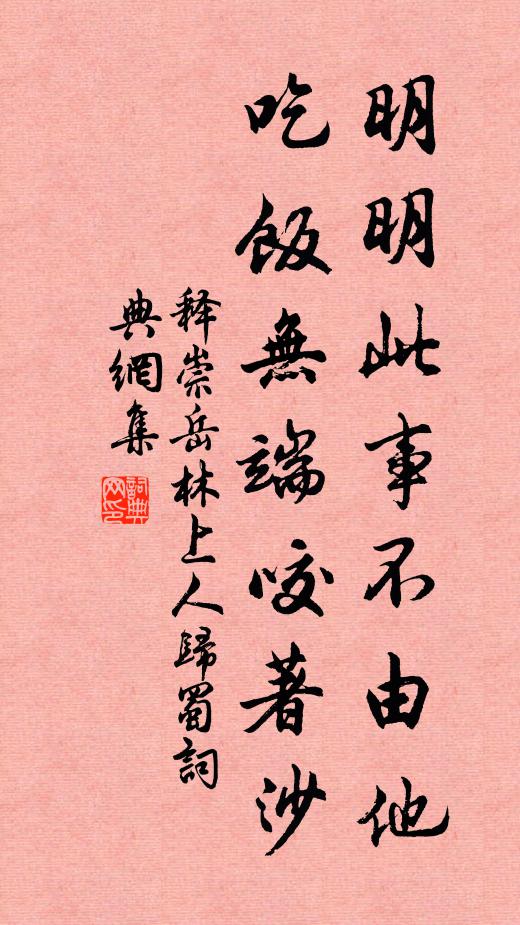 明明此事不由他
吃飯無端咬著沙
釋崇岳林上人歸蜀詞
典網集
詞典网印